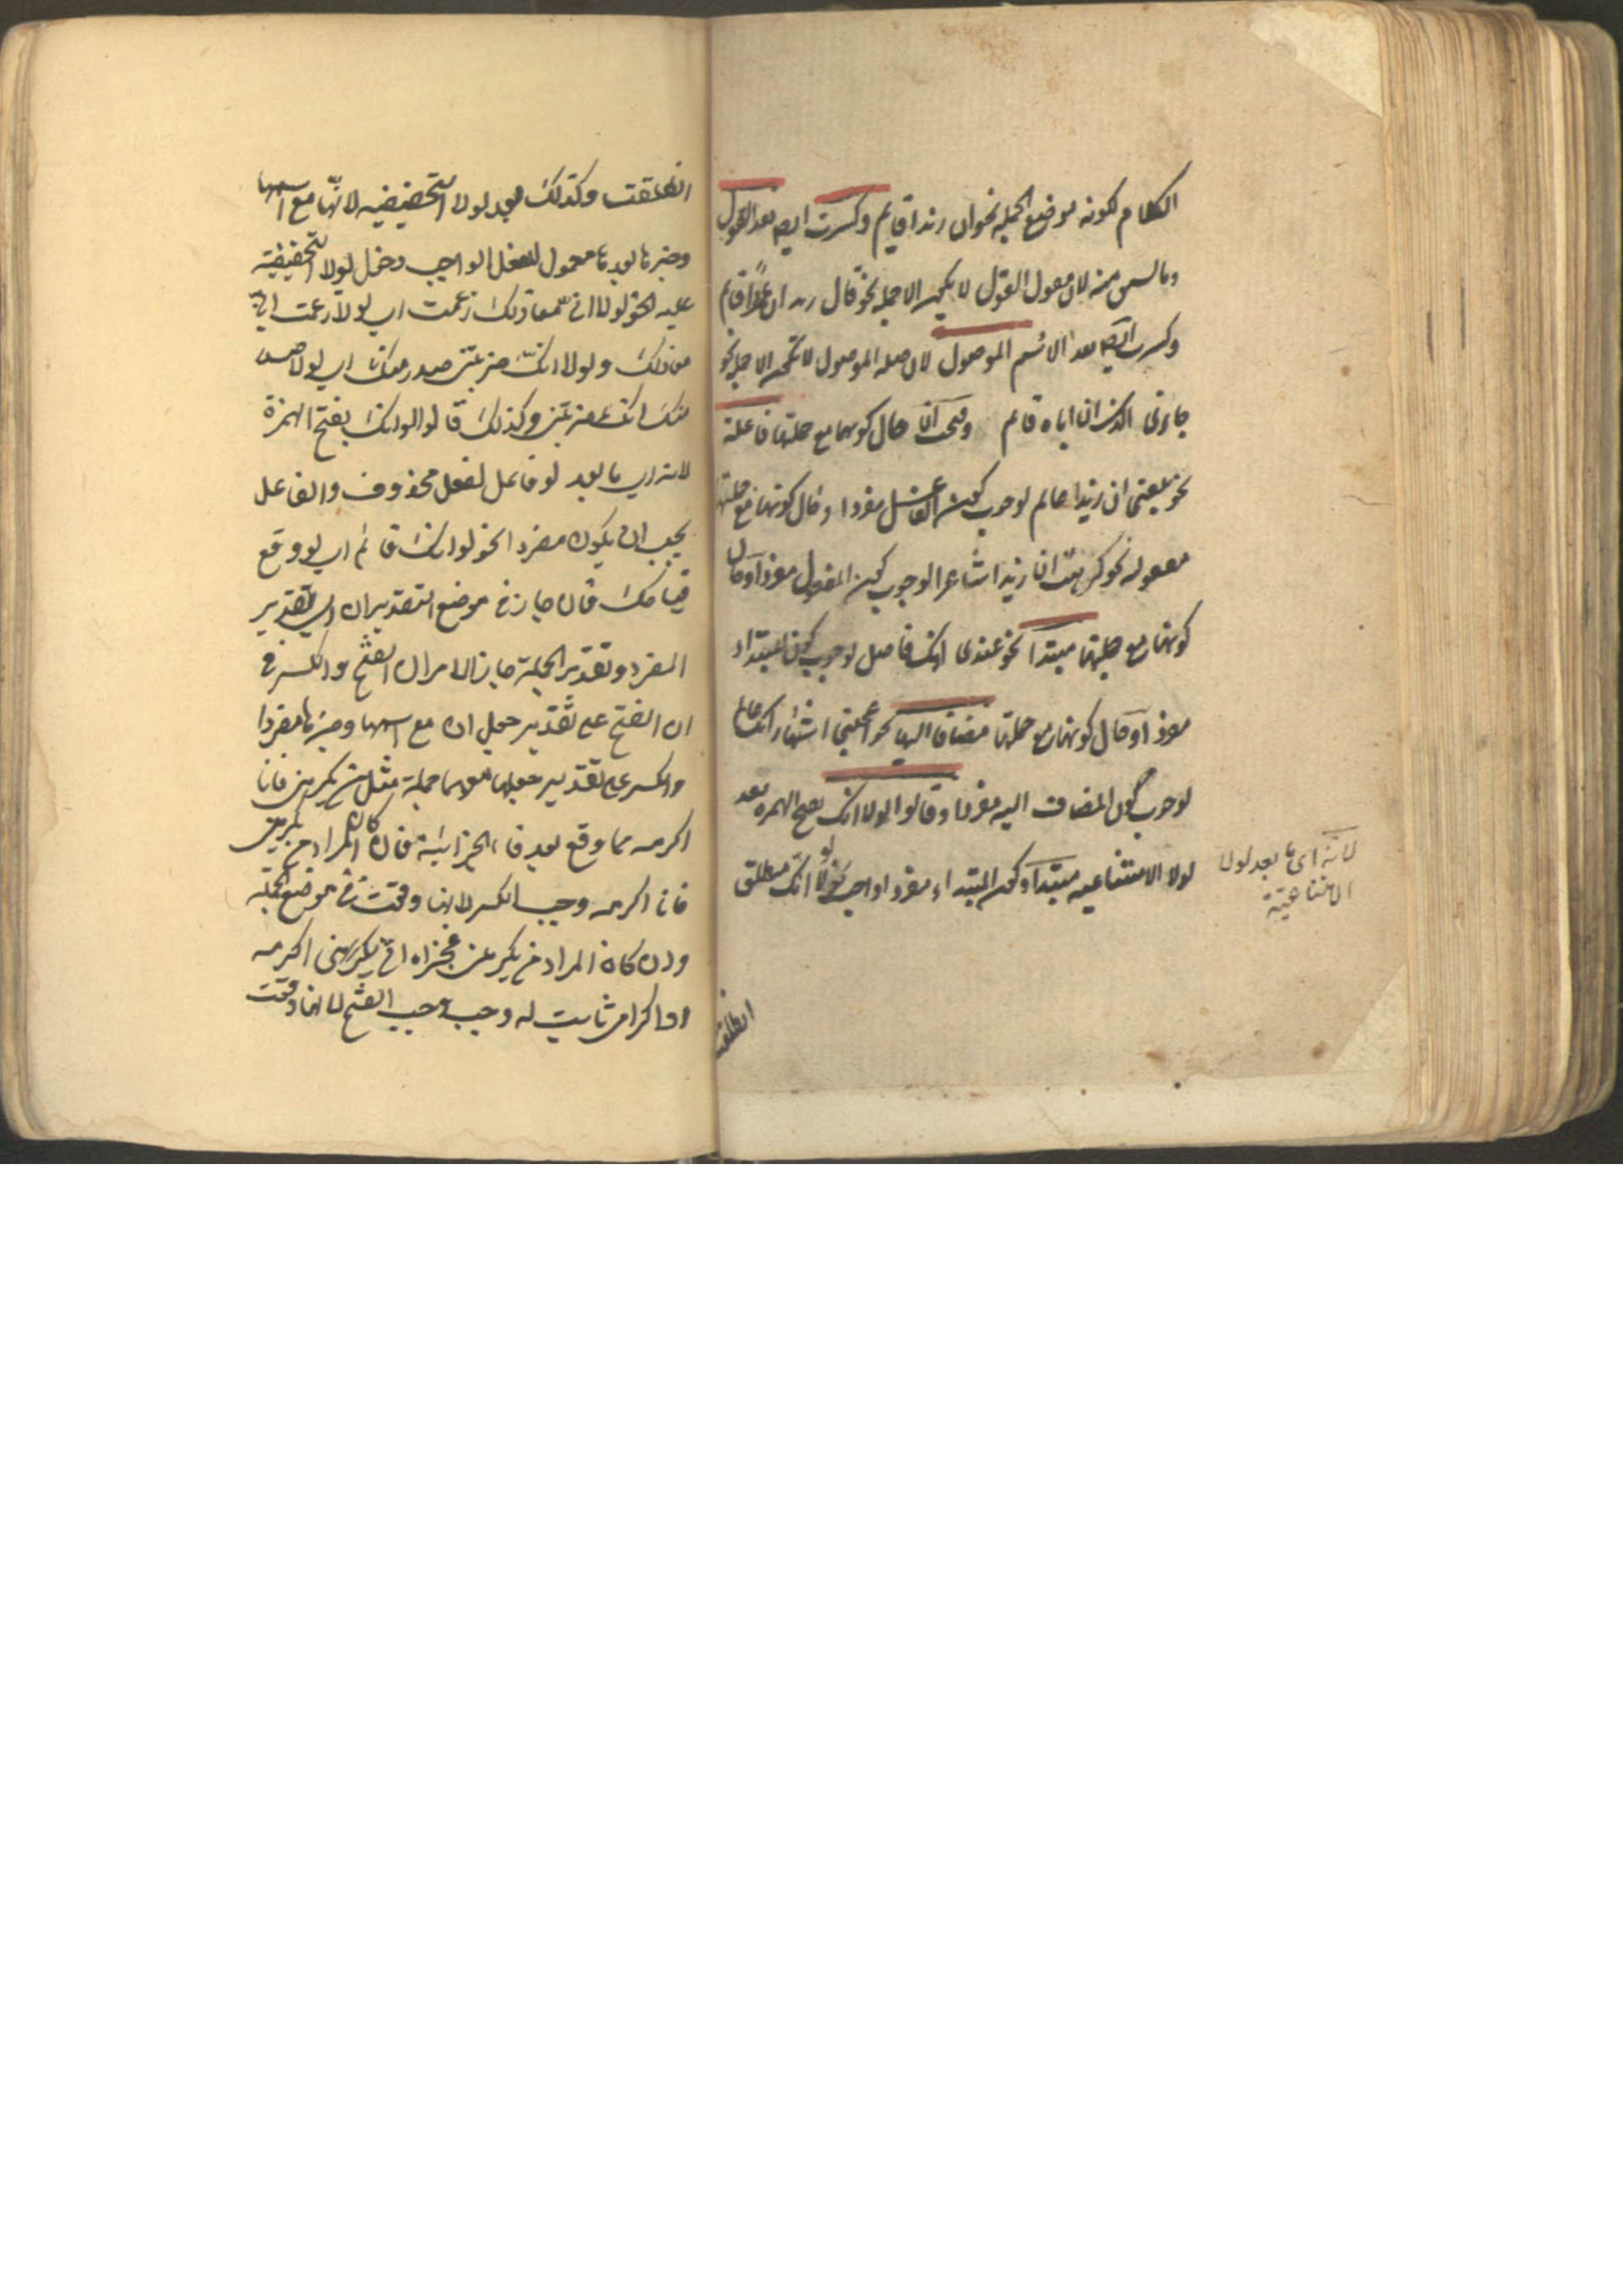 الكلام لكونه موضع الجملة نحو ان زيدا قايم وكسرت ايضا بعد القول
وما لان مقول القول لا يكون الا جملة نحو قال زيد ان عمرا قايم
وكسرت ايضا بعد الاسم الموصول لان صلة الموصول لا تكون الا جملة نحو
جاءنى الذى ان اباه قايم وفتحت ان حال كونها مع جملتها فاعلة
نحو بلغنى ان زيدا عالم لوجوب كون الفاعل مفردا وحال كونها مع جملتها
مفعوله نحو كرهت ان زيدا شاعر لوجوب كون المفعول مفردا وحال
كونها مع جملتها مبتدا نحو عندى انك فاضل لوجوب كون المبتداء
مفردا وحال كونها مع جملتها مضافا اليها نحو اعجبنى اشتهار انك عالم
لوجوب كون المضاف اليه مفردا وقالوا لولا انك بفتح الهمزة بعد
لولا الامتناعيه مبتدا وكون المبتداء مفردا واجب نحو لولا انك منطلق
لانه اى ما بعد لولا
الامتناعية
انطلقت
انطلقت وكذلك بعد لولا التحضيضيه لانها مع اسمها
وخبرها بعدها معمول للفعل الواجب دخل لولا التحضيضية
عليه نحو لولا انى معاذ لك زعمت اى لولا زعمت انى
معاذ لك ولولا انك ضربتنى صدر منك اى لولا
منك انك ضربتنى وكذلك قالوا لو انك بفتح الهمزة
لانه اى ما بعد لو فاعل لفعل محذوف والفاعل
يجب ان يكون مفردا نحو لو انك قائم اى لو وقع
قيامك فان جاز فى موضع التقديران اى تقدير
المفرد وتقدير الجملة جاز الامران الفتح والكسر فى
ان الفتح على تقدير جعل ان مع اسمها وخبرها مفردا
والكسر على تقدير جعلها معهما جملة مثل من يكرمنى فانا
اكرمه مما وقع بعد فاء الجزائية فان كان المراد من يكرمنى
فانا اكرمه وجب الكسر لانها وقعت فى موضع الجملة
وان كان المراد من يكرمنى فجزاه انى يكرمنى اكرمه
او اكرامى ثابت له وجب الفتح لانها وقعت